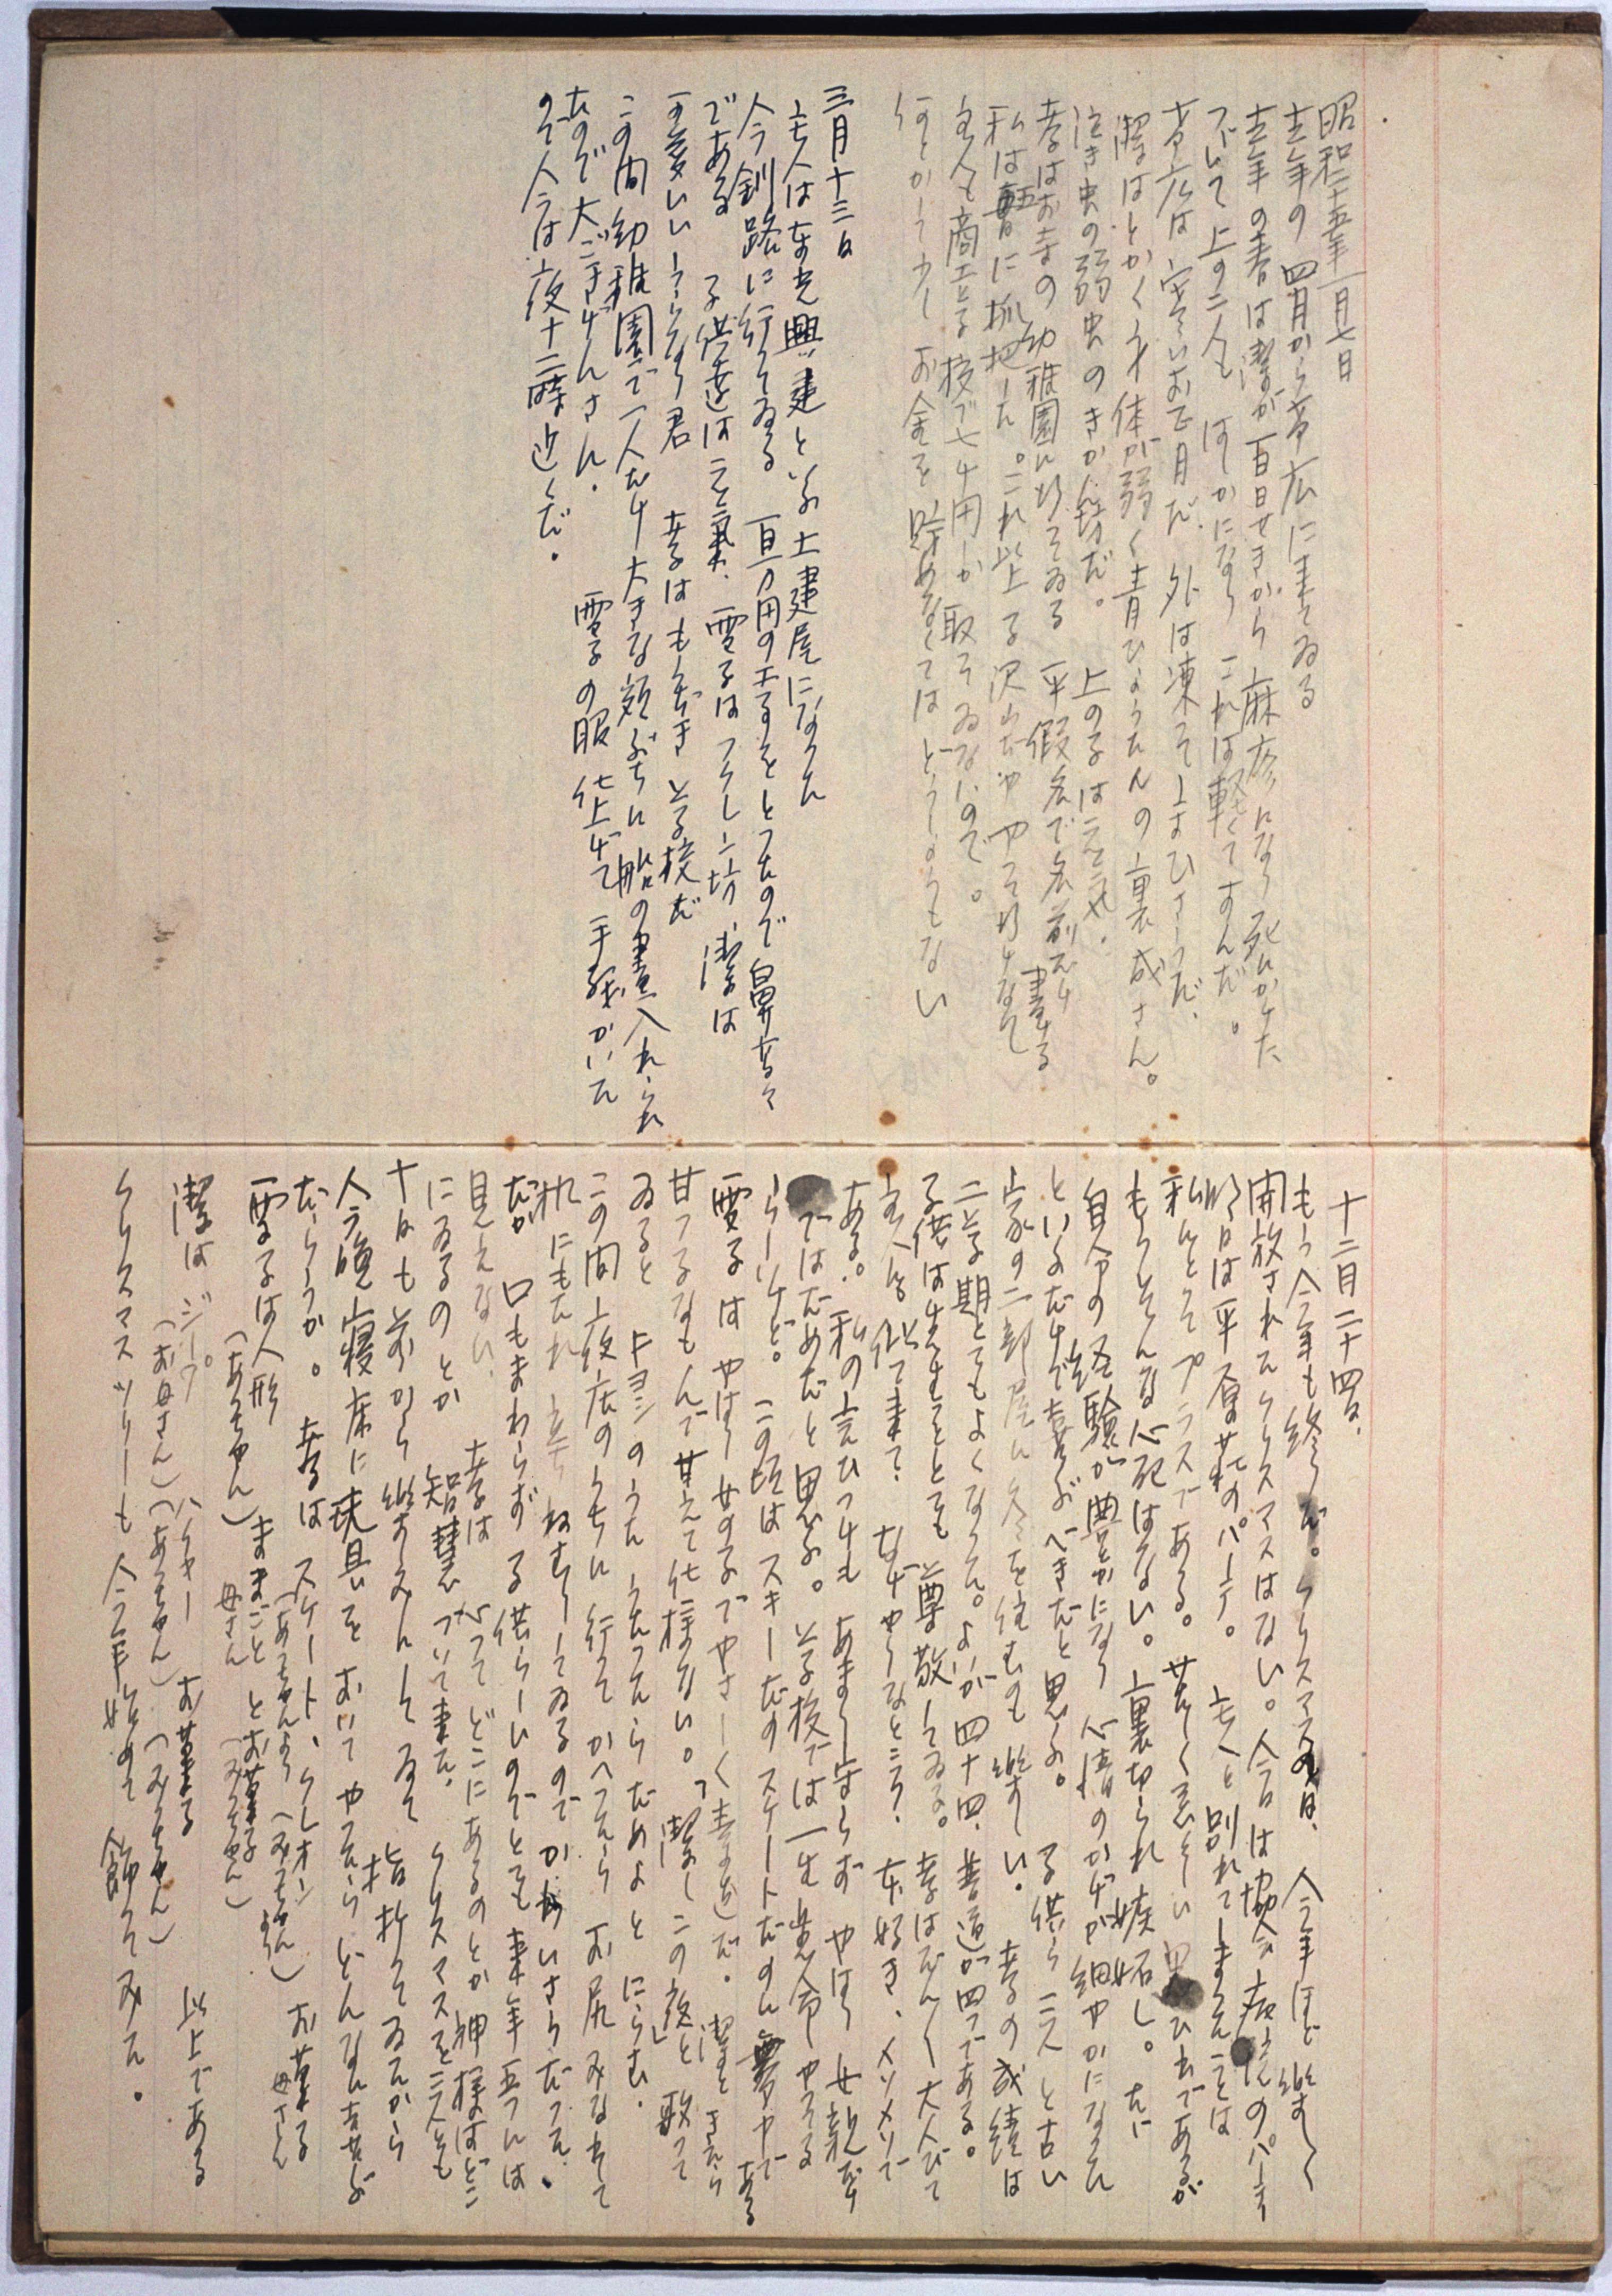 昭和二十五年一月七日
去年の四月から帯広に来てゐる
去年の春は潔が百日せきから麻疹になり死にかけた
つづいて上の二人も はしかになり これは軽くてすんだ。
帯広は寒いお正月だ 外は凍てしまひさうだ、
潔はとかく身体が弱く青ひょうたんの裏成さん。
泣き虫の弱虫のきかん坊だ。 上の子は元気.
孝はお寺の幼稚園に行てゐる 平假名で名前だけ書ける
私は 。これ以上子沢山ぢゃやって行けなくて
主人も商工学校で七千円しか取てゐないので。
何とかして少しお金を貯めなくてはどうしようもない
三月十三日
主人は東光興建といふ土建屋になった
今釧路に行てゐる 百万円の工事をとったので鼻高々
である 子供達は元気、雪子はフクレン坊、潔は
可愛いいうらなり君 孝はもうぢき学校だ
この間幼稚園で一人だけ大きな額ぶちに船の畫入れられ
たので大ごきげんさん. 雪子の服仕上げて手紙かいた
ので今は夜十二時近くだ。
十二月二十四日、
もう今年も終りだ。クリスマス 今年ほど楽しく
開放されたクリスマスはない。今日は協会病院のパーテ
明日は平原荘のパーテ。主人と別れてしまったことは
私にとってプラスである。苦しく悲しい思ひ出であるが
もうそんな心配はない。裏切られ嫉妬し。たゞ
自分の経験が豊かになり心情のかげが細やかになった
といふだけで喜ぶべきだと思ふ。 子供ら三人と古い
家の二部屋に冬を住むも楽しい。 孝の成績は
二学期とてもよくなった。よいが四十四、普通が四つである。
子供は先生をとても尊敬してゐる。孝はだんだん大人びて
主人に似て来て、 なげやりなところ、本好き、メソメソで
ある。私の言ひつけも あまり守らず やはり女親だけ
ではだめだと思ふ。学校では一生懸命やってる
らしいけど。 この頃はスキーだのスケートだのに夢中である
雪子は やはり女の子でやさしく 潔ときたら
甘ったるなもんで甘えて仕様がない。「潔しこの夜」と歌って
ゐると キヨシのうた うたったらだめよ とにらむ.
この間夜店のうちに行って かへったら お尻みな出て
机にもたれ ねむりしてゐるので かわいさうだった.
だが口もまわらず 子供らしいのでとても来年五つには
見えない、 孝は 雪がどこにあるのとか神様はどこ
にゐるのとか 智慧がついて来た。クリスマスを三人とも
十日も前から楽しみにしてゐて 指折ってゐたから
今晩寝床に玩具をおいてやったらどんなに喜ぶ
だらうか。 孝はスケート、クレオン お菓子
雪子は人形 ままごと とお菓子
潔は ジープ ハイヤー お菓子 以上である
(お母さん)(あっちゃん) (みっちゃん)
クリスマスツリーも今年始めて飾ってみた。